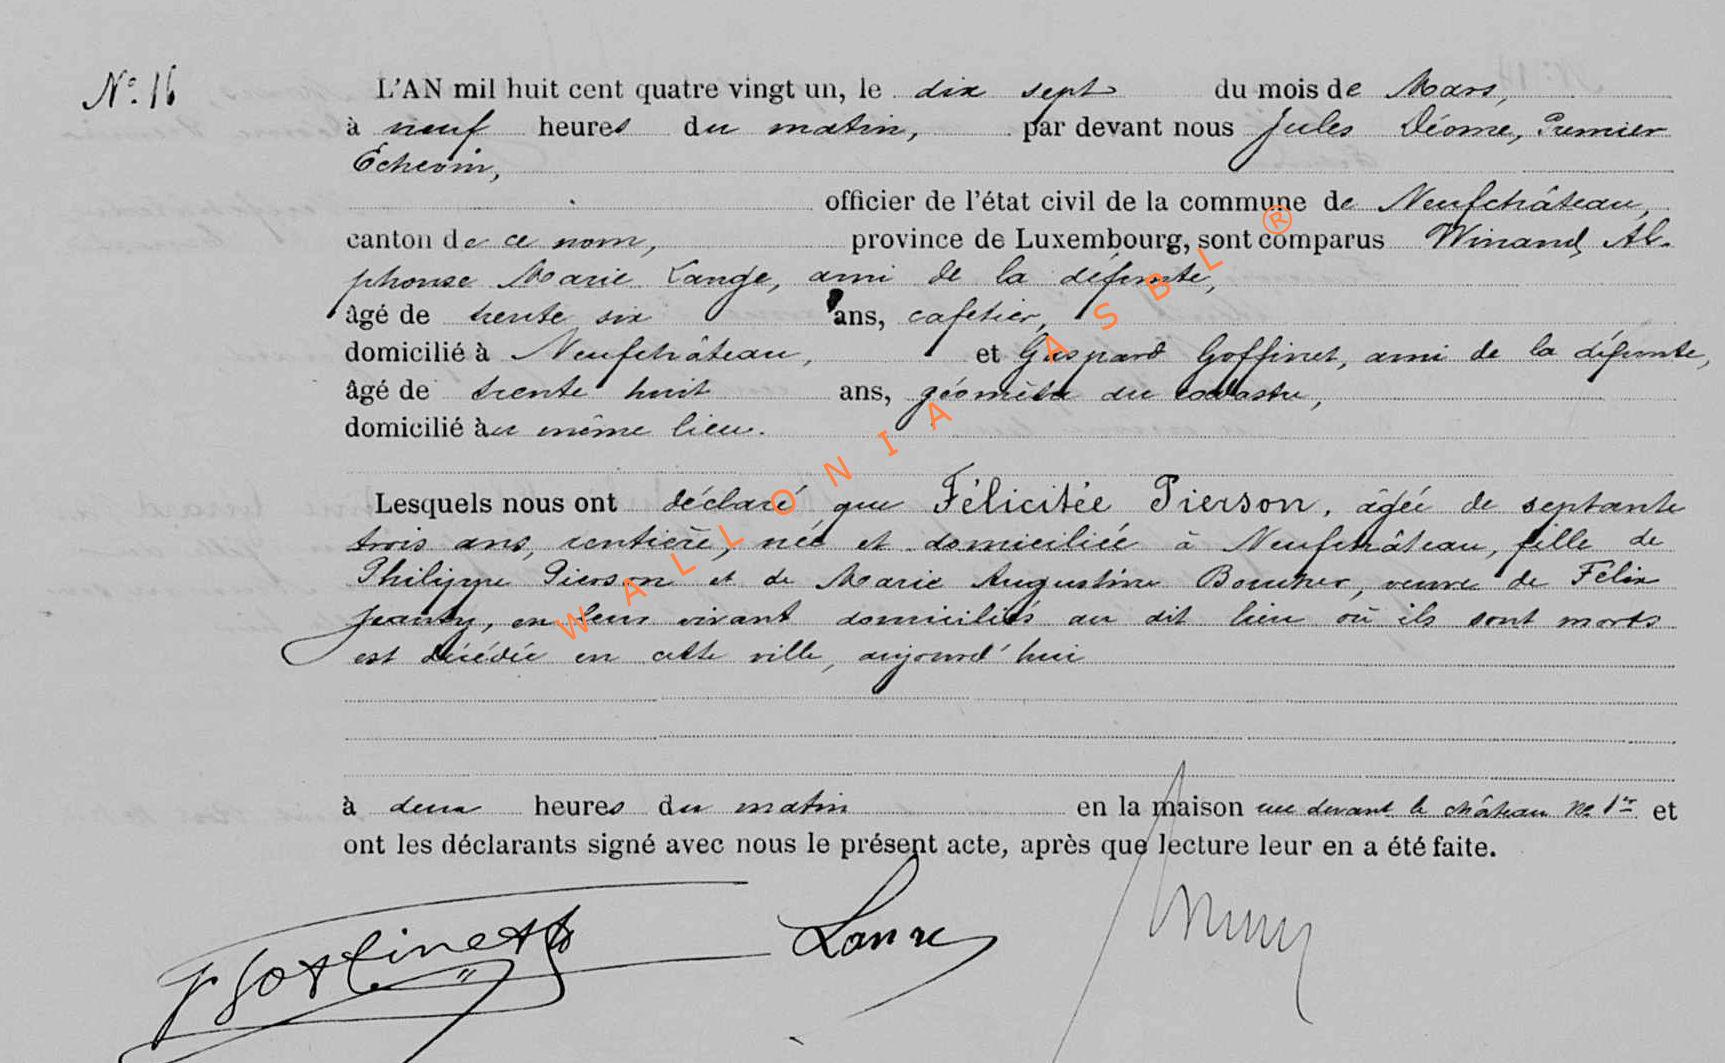 N° 16
L'AN mil huit cent quatre vingt un, le dix sept du mois de Mars,
à neuf heures du matin, par devant nous Jules Déome, Premier
Echevin,
officier de l'état civil de la commune de Neufchâteau,
canton de ce nom, province de Luxembourg, sont comparus Winand, Al-
phonse Marie Lange, ami de la défunte,
âgé de trente six ans, cafetier,
domicilié à Neufchâteau, et Gaspard Goffinet, ami de la défunte,
âgé de trente huit ans, géomètre du cadastre,
domicilié au même lieu.
Lesquels nous ont déclaré que Félicitée Pierson, âgée de septante
trois ans, rentière, née et domiciliée à Neufchâteau, fille de
Philippe Pierson et de Marie Augustine, veuve de Félix
Jeanty, en leur vivant domiciliés au dit lieu où ils sont morts
est décédée en cette ville, aujourd'hui
à deux heures du matin en la maison rue devant le château No 1er et
ont les déclarants signé avec nous le présent acte, après que lecture leur en a été faite.
Goffinet Lange
WALLONIA ASBL ®